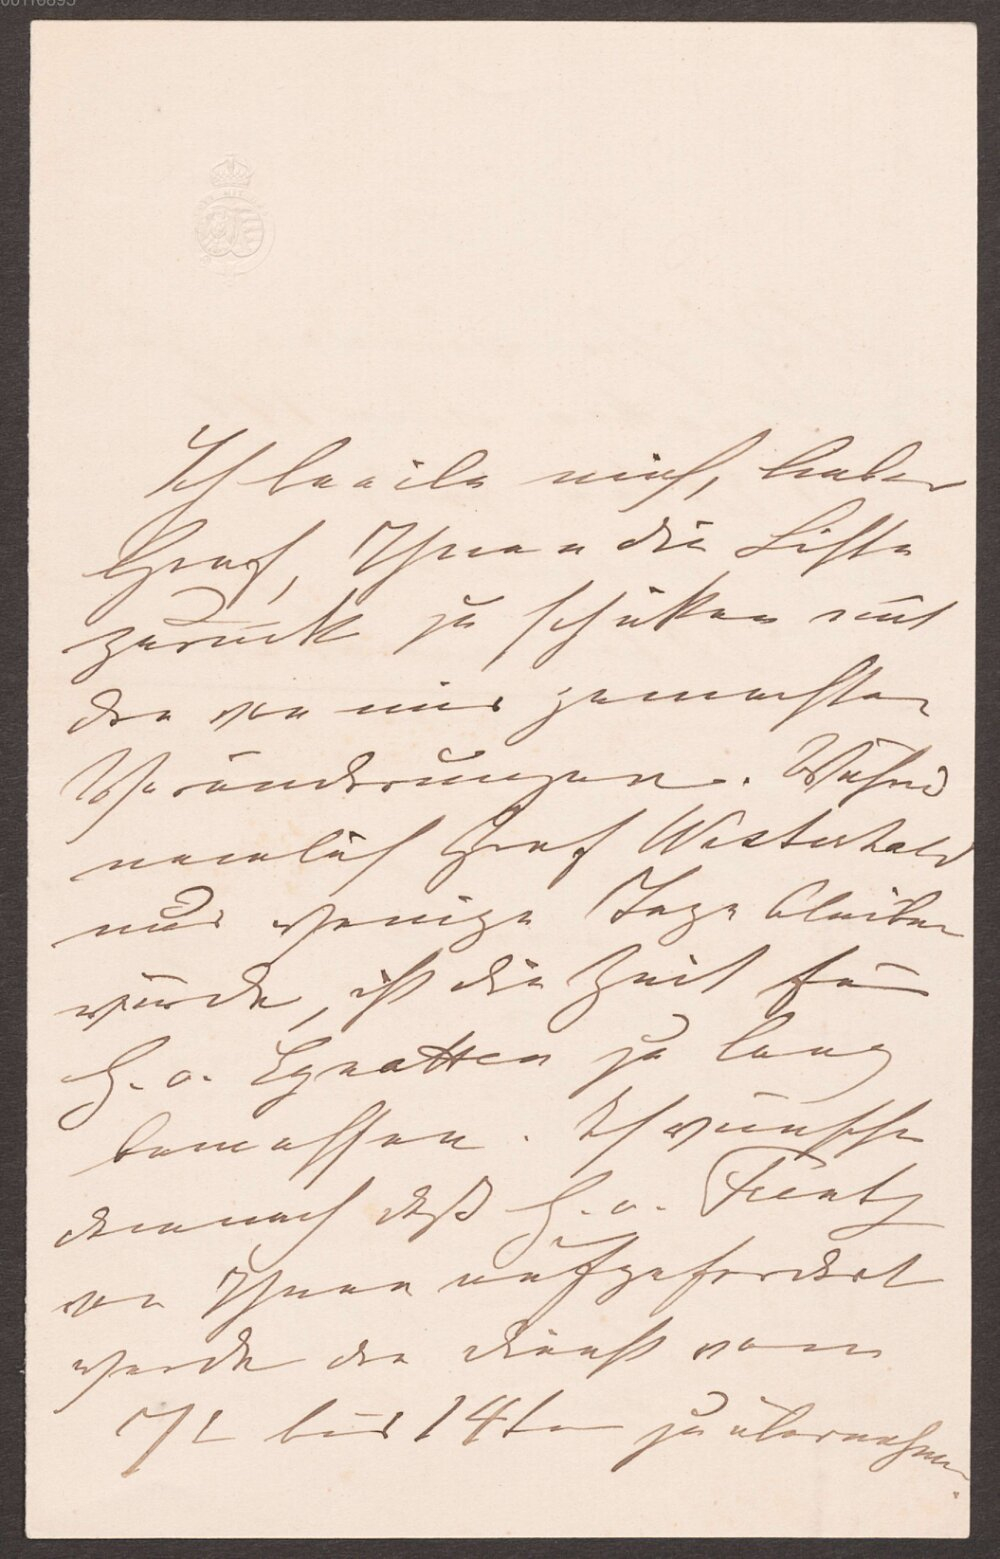 Ich beeile mich, lieber
Graf, Ihnen die Liste
zurück zu schicken mit
den von mir gemachten
Veränderungen. Während
nemlich Graf Westerhold
nur wenige Tage bleiben
würde, ist die Zeit für
H. v. Eynatten zu lang
bemessen. Ich wünsche
demnach daß H. v.
von Ihnen aufgefordert
werde den Dienst vom
7t bis 14ten zu übernehmen.